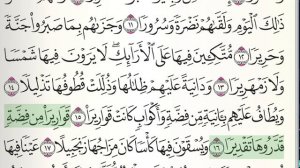 ذَٰلِكَ ٱلْيَوْمِ وَلَقَّىٰهُمْ نَضْرَةً وَسُرُورًا ١١ وَجَزَىٰهُم بِمَا صَبَرُوا۟ جَنَّةً
وَحَرِيرًا ١٢ مُّتَّكِـِٔينَ فِيهَا عَلَى ٱلْأَرَآئِكِ ۖ لَا يَرَوْنَ فِيهَا شَمْسًا
وَلَا زَمْهَرِيرًا ١٣ وَدَانِيَةً عَلَيْهِمْ ظِلَٰلُهَا وَذُلِّلَتْ قُطُوفُهَا تَذْلِيلًا ١٤
وَيُطَافُ عَلَيْهِم بِـَٔانِيَةٍ مِّن فِضَّةٍ وَأَكْوَابٍ كَانَتْ قَوَارِيرَا۠ ١٥ قَوَارِيرَا۟ مِن فِضَّةٍ
قَدَّرُوهَا تَقْدِيرًا ١٦ وَيُسْقَوْنَ فِيهَا كَأْسًا كَانَ مِزَاجُهَا زَنجَبِيلًا ١٧ عَيْنًا فِيهَا